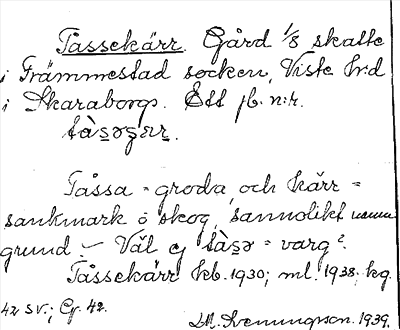 Tåssekärr. Gård 1/8 skatte
i Främmestad socken, Viste hrd
i Skaraborgs. Ett fb. n:r.
Tåssa = groda, och kärr =
sankmark o skog, sannolikt namn
grund. – Väl ej = varg?
Tåssekärr kb. 1930; ml. 1938. kg.
42 SV.; Gg. 42.
Svenungsson. 1939.